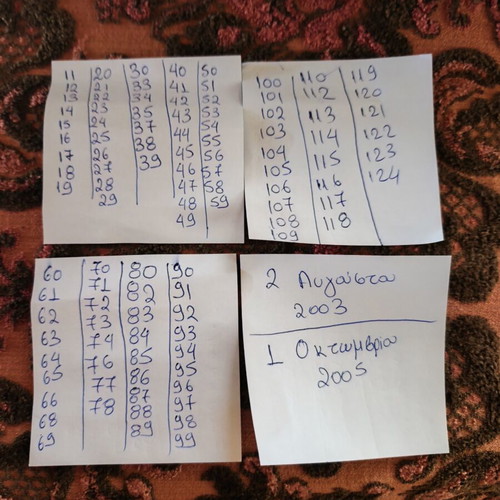 11
12
13
14
15
16
17
18
19
20
21
22
23
24
25
26
27
28
29
30
33
34
35
37
38
39
40
41
42
43
44
45
46
47
48
49
50
51
52
53
54
55
56
57
58
59
100
101
102
103
104
105
106
107
108
109
110
112
113
114
115
116
117
118
119
120
121
122
123
124
60
61
62
63
64
65
66
68
69
70
71
72
73
74
76
77
78
80
82
83
84
85
86
87
88
89
90
91
92
93
94
95
96
97
98
99
2 Αυγούστου
2003
1 Οκτωμβρίου
2005